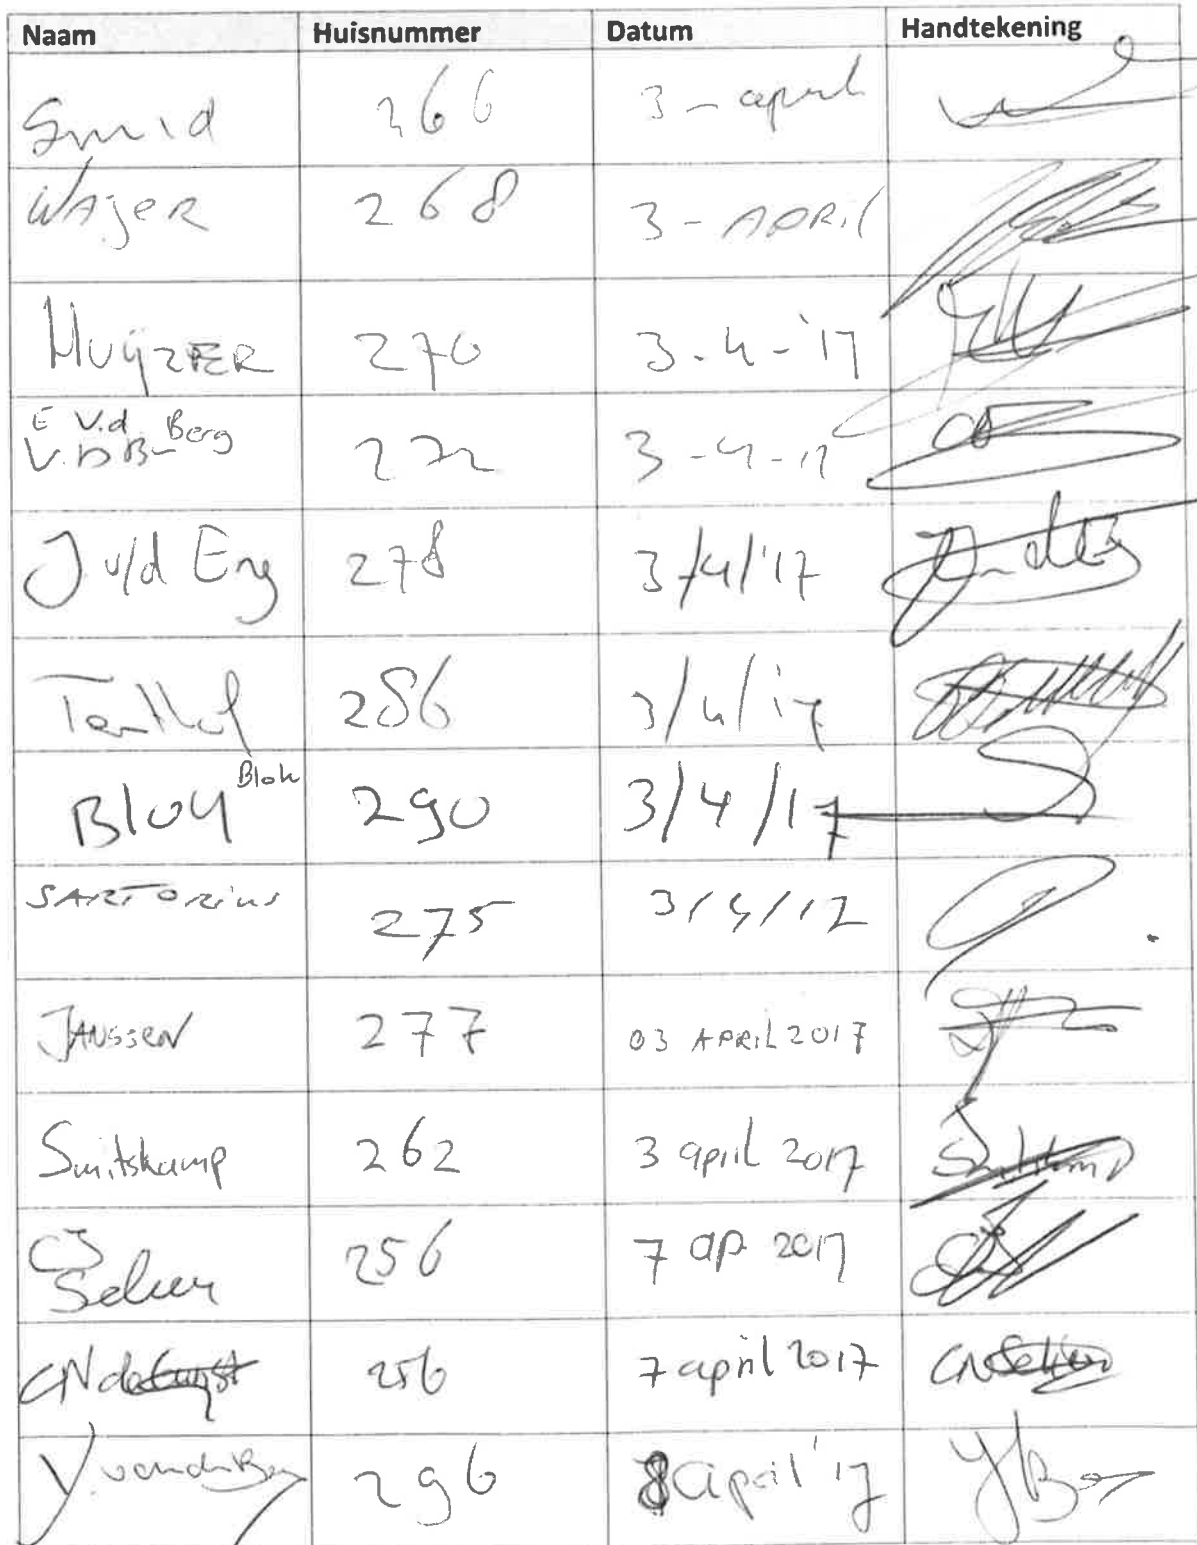 Naam Huisnummer Datum Handtekening
Smid 266 3 - april
WAJER 268 3 - APRil
MuijzER 270 3-4-'17
E V.d. Berg
V.D B 272 3-4-17
J v/d Eng 278 3/4/'17
286 3/4/17
Blok
Blok 290 3/4/17
SARTORius 275 3/4/17
JANSSEN 277 03 APRIL 2017
Smitskamp 262 3 april 2017 Smitskamp
CJ
256 7 ap 2017
CN de 256 7 april 2017 CN
Y. van den Berg 296 8 april '17